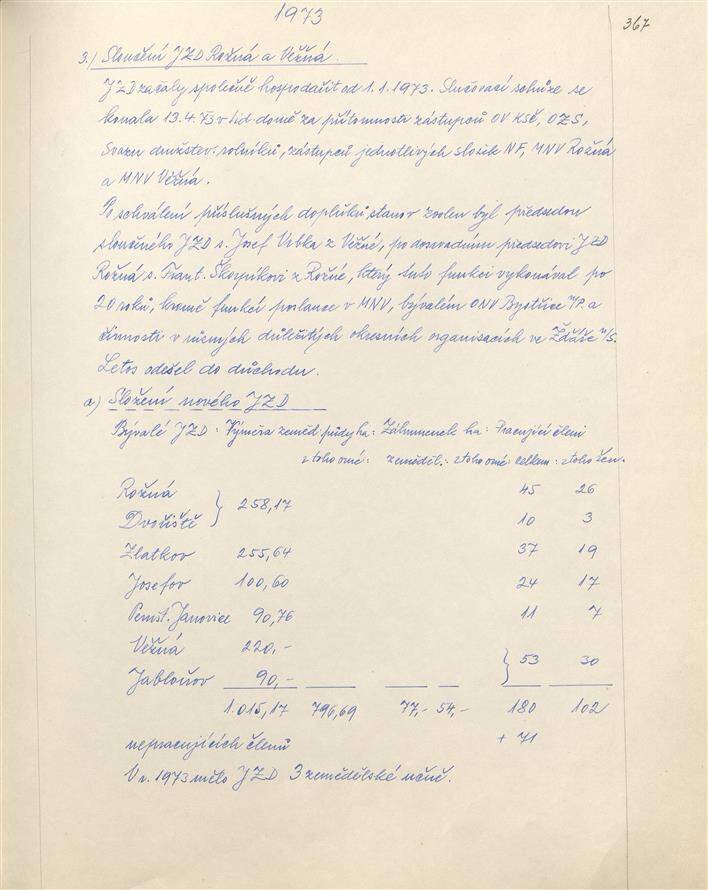 1973
367
3.) Sloučení JZD Rožná a Věžná.
JZD začaly společně hospodařit od 1.1.1973. Slučovací schůze se
konala 13.4.73 v lid. domě za přítomnosti zástupců OV KSČ, OZS,
Svazu družstev. rolníků, zástupců jednotlivých složek NF, MNV Rožná
a MNV Věžná.
Po schválení příslušných doplňků stanov zvolen byl předsedou
sloučeného JZD s. Josef Vrbka z Věžné, po dosavadním předsedovi JZD
Rožná s. Frant. Škorpíkovi z Rožné, který tuto funkci vykonával po
20 roků, kromě funkcí poslance v MNV, bývalém ONV Bystřice n/P. a
činnosti v různých důležitých okresních organisacích ve Žďáře n/S.
Letos odešel do důchodu.
a) Složení nového JZD
Bývalé JZD : Výměra zeměd. půdy ha : Záhumenek ha : Pracující členi
z toho orné : zeměděl. : z toho orné : celkem : z toho žen.
Rožná 45 26
258,17
Dvořiště 10 3
Zlatkov 255,64 37 19
Josefov 100,60 24 17
Pernšt. Janovice 90,76 11 7
Věžná 220,-
53 30
Jabloňov 90,-
1.015,17 796,69 77,- 54,- 180 102
nepracujících členů + 71
V r. 1973 mělo JZD 3 zemědělské učně.